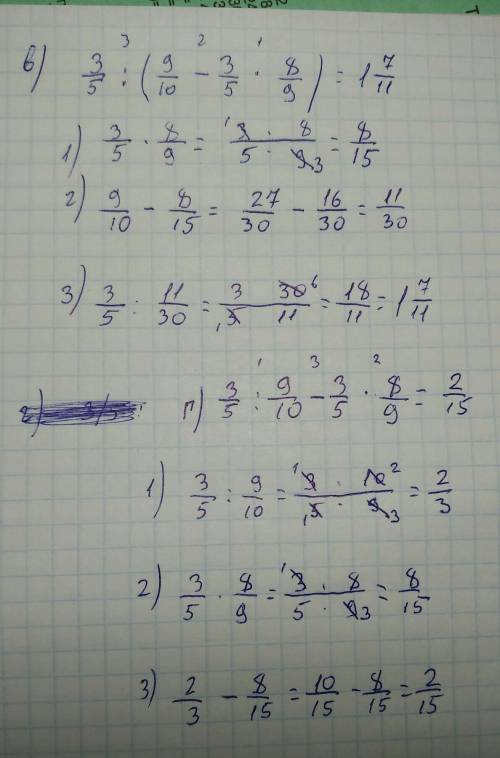 в) 3/5 : (9/10 - 3/5 · 8/9) = 1 7/11
1) 3/5 · 8/9 = 3 · 8 / 5 · 9 = 8/15
2) 9/10 - 8/15 = 27/30 - 16/30 = 11/30
3) 3/5 : 11/30 = 3 30 / 5 11 = 18/11 = 1 7/11
г) 3/5 : 9/10 - 3/5 · 8/9 = 2/15
1) 3/5 : 9/10 = 3 · 10 / 5 · 9 = 2/3
2) 3/5 · 8/9 = 3 · 8 / 5 · 9 = 8/15
3) 2/3 - 8/15 = 10/15 - 8/15 = 2/15